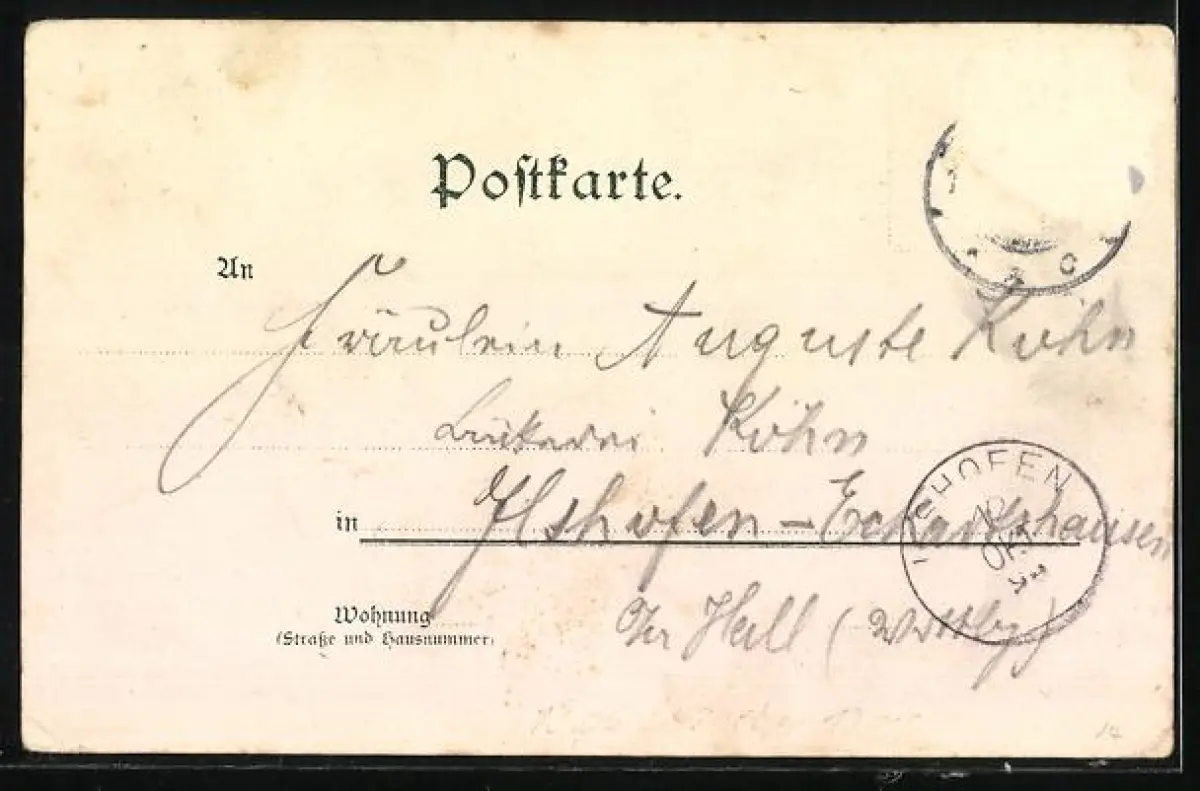 Postkarte.
An
Fräulein Auguste Köhn
Bäkerei Köhn
in Ilshofen - Eckartshausen
Wohnung
(Straße und Hausnummer)
Hall (Wrttbg)
ILSHOFEN
OKT
K